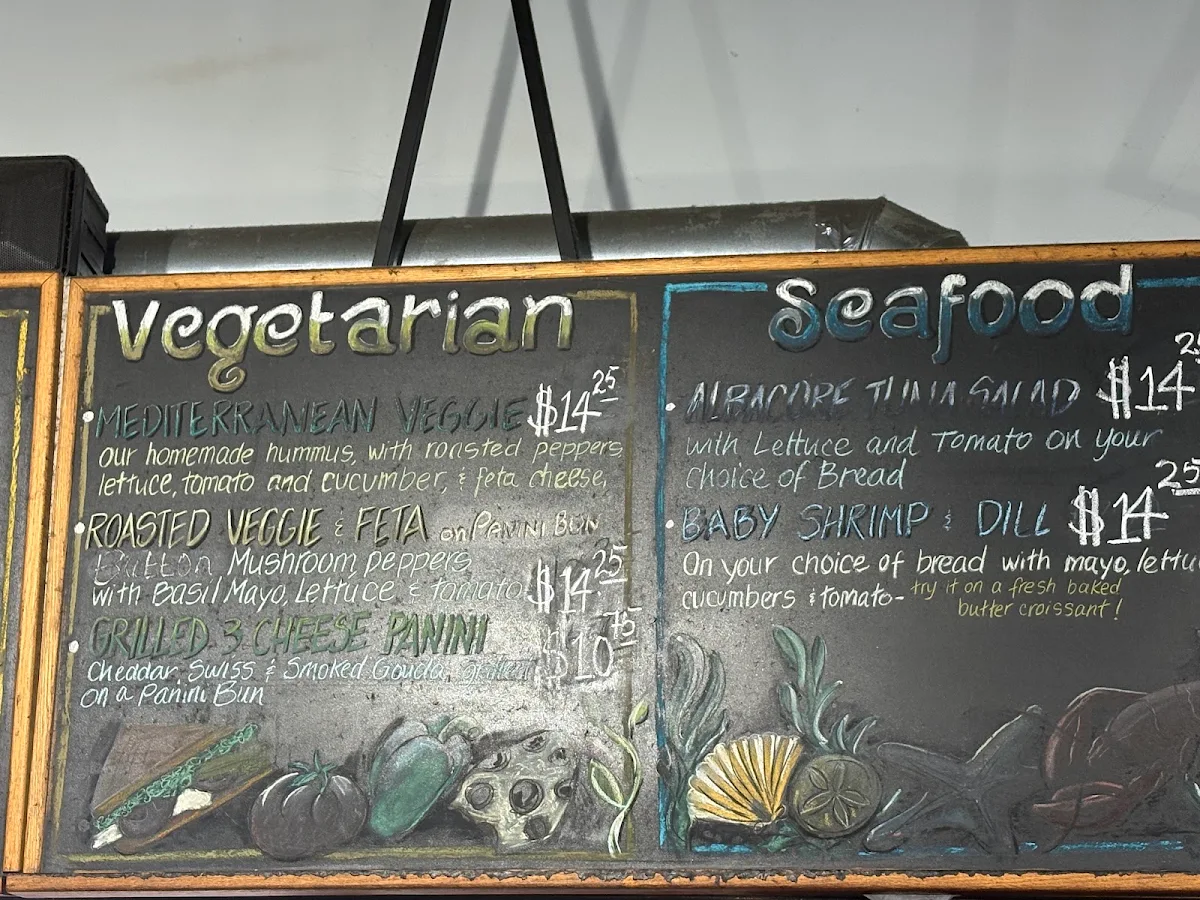 Vegetarian
MEDITERRANEAN VEGGIE $14 25
our homemade hummus, with roasted peppers
lettuce, tomato and cucumber, & feta cheese,
ROASTED VEGGIE & FETA on PANINI BUN
Button Mushroom, peppers
with Basil Mayo, Lettuce & tomato $14 25
GRILLED 3 CHEESE PANINI
Cheddar, Swiss & Smoked Gouda, grilled $10 75
on a Panini Bun
Seafood
ALBACORE TUNA SALAD $14 25
with Lettuce and Tomato on your
choice of Bread
BABY SHRIMP & DILL $14 25
On your choice of bread with mayo, lettu
cucumbers & tomato- try it on a fresh baked
butter croissant!